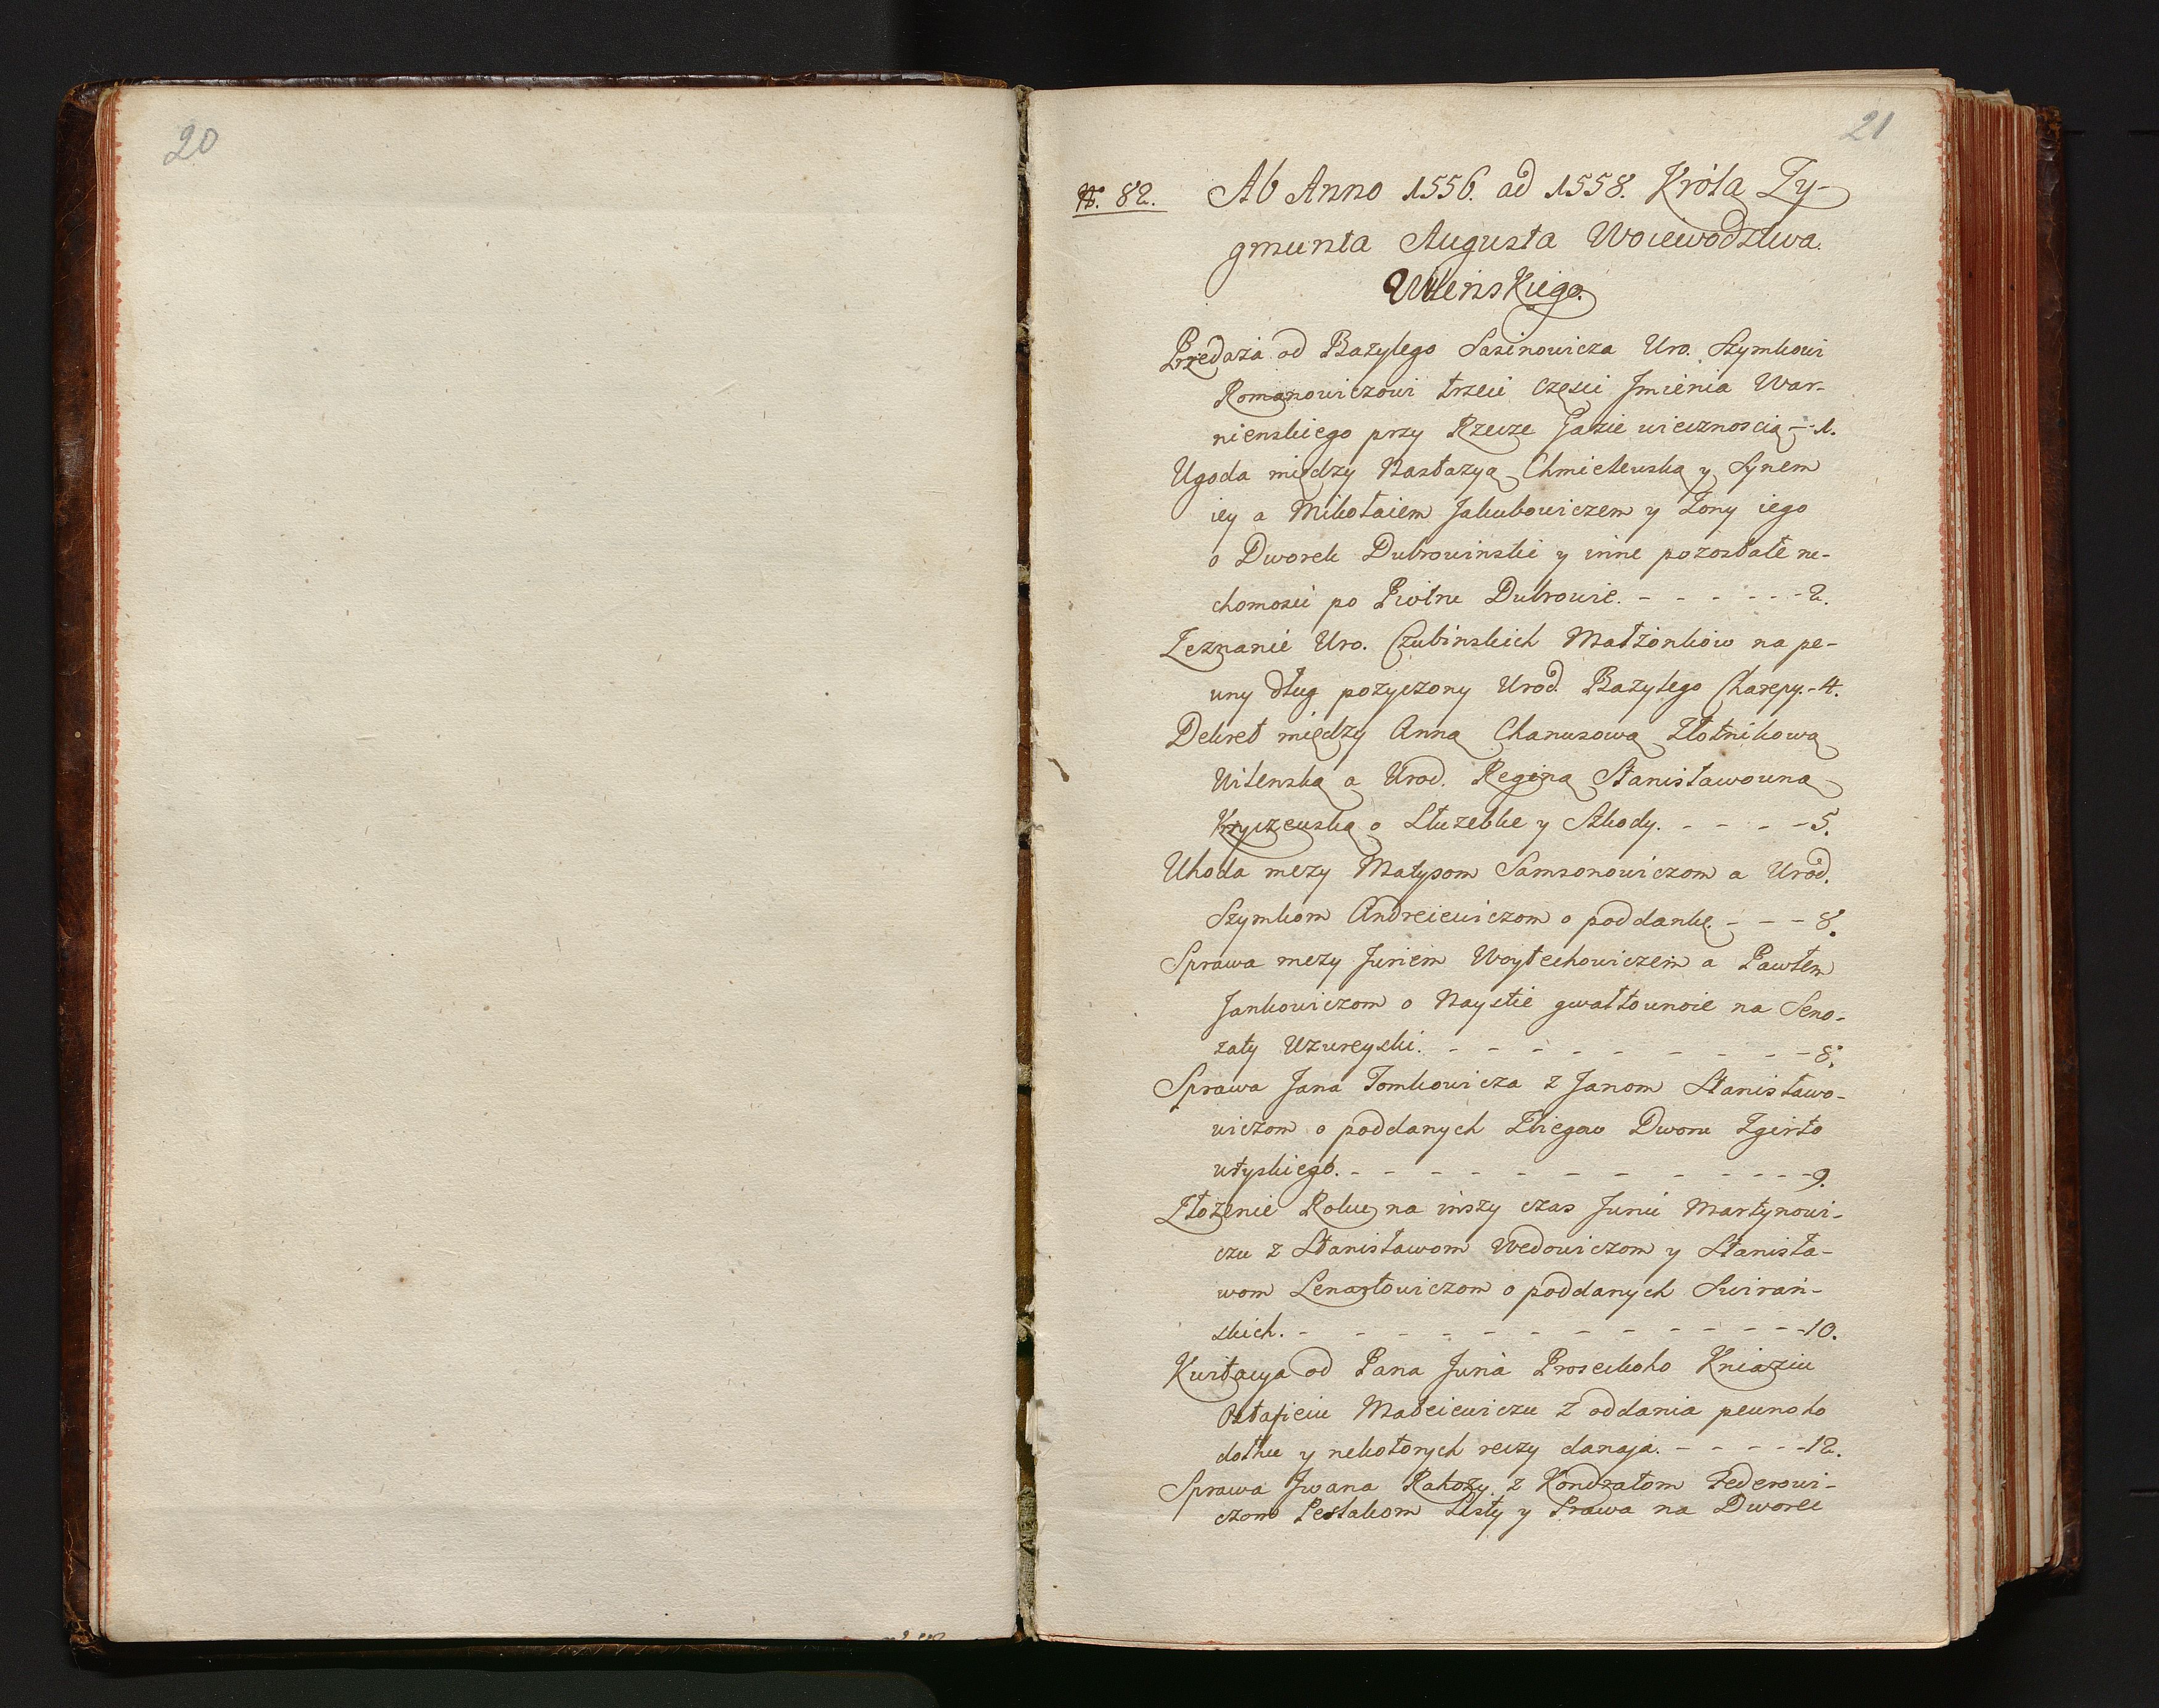 20
21
N. 82. Ab Anno 1556. ad 1558. Króla Zy-
gmunta Augusta Woiewodztwa
Wilenskiego.
Przedaża od Bazylego Sasinowicza Uro. Szymkowi
Romanowiczowi trzeci częsci Jmienia War-
nienskiego przy Rzecze Gazie wiecznoscią - - 1.
Ugoda między Nastazyą Chmielewską y Synem
iey a Mikołaiem Jakubowiczem y Żony iego
o Dworek Dubrowinski y inne pozostałe ru-
chomosci po Piotru Dubrowie. - - - - - - 2.
Zeznanie Uro. Czubinskich Małżonków na pe-
wny dług pożyczony Urod. Bazylego Charepy. - 4.
Dekret między Anną Chanusową Złotnikową
Wilenską a Urod. Reginą Stanisławowną
Kryczewską o Służebke y Szkody. - - - - 5.
Uhoda mezy Matysom Samsonowiczom a Urod.
Szymkom Andreiewiczom o poddankę. - - - 8.
Sprawa mezy Juriem Woytechowiczem a Pawłem
Jankowiczom o Naystie gwałtownoie na Seno-
zaty Uzureyski. - - - - - - - - - 8.
Sprawa Jana Tomkowicza z Janom Stanisławo-
wiczom o poddanych Zbiegow Dworu Zgirto
wtyskiego. - - - - - - - - - - - - 9.
Złożenie Roku na inszy czas Juriu Martynowi-
czu z Stanisławom Wedowiczom y Stanisła-
wom Lenartowiczom o poddanych Swirań-
skich. - - - - - - - - - - - - - 10.
Kwitacya od Pana Juria Proseckoho Kniaziu
Ostafieiu Macieiewiczu z oddania pewnoho
dołhu y nekotorych reczy danaja. - - - - - 12.
Sprawa Jwana Rahozy z Kondratom Federowi-
czom Pestakom Listy y Prawa na Dworec